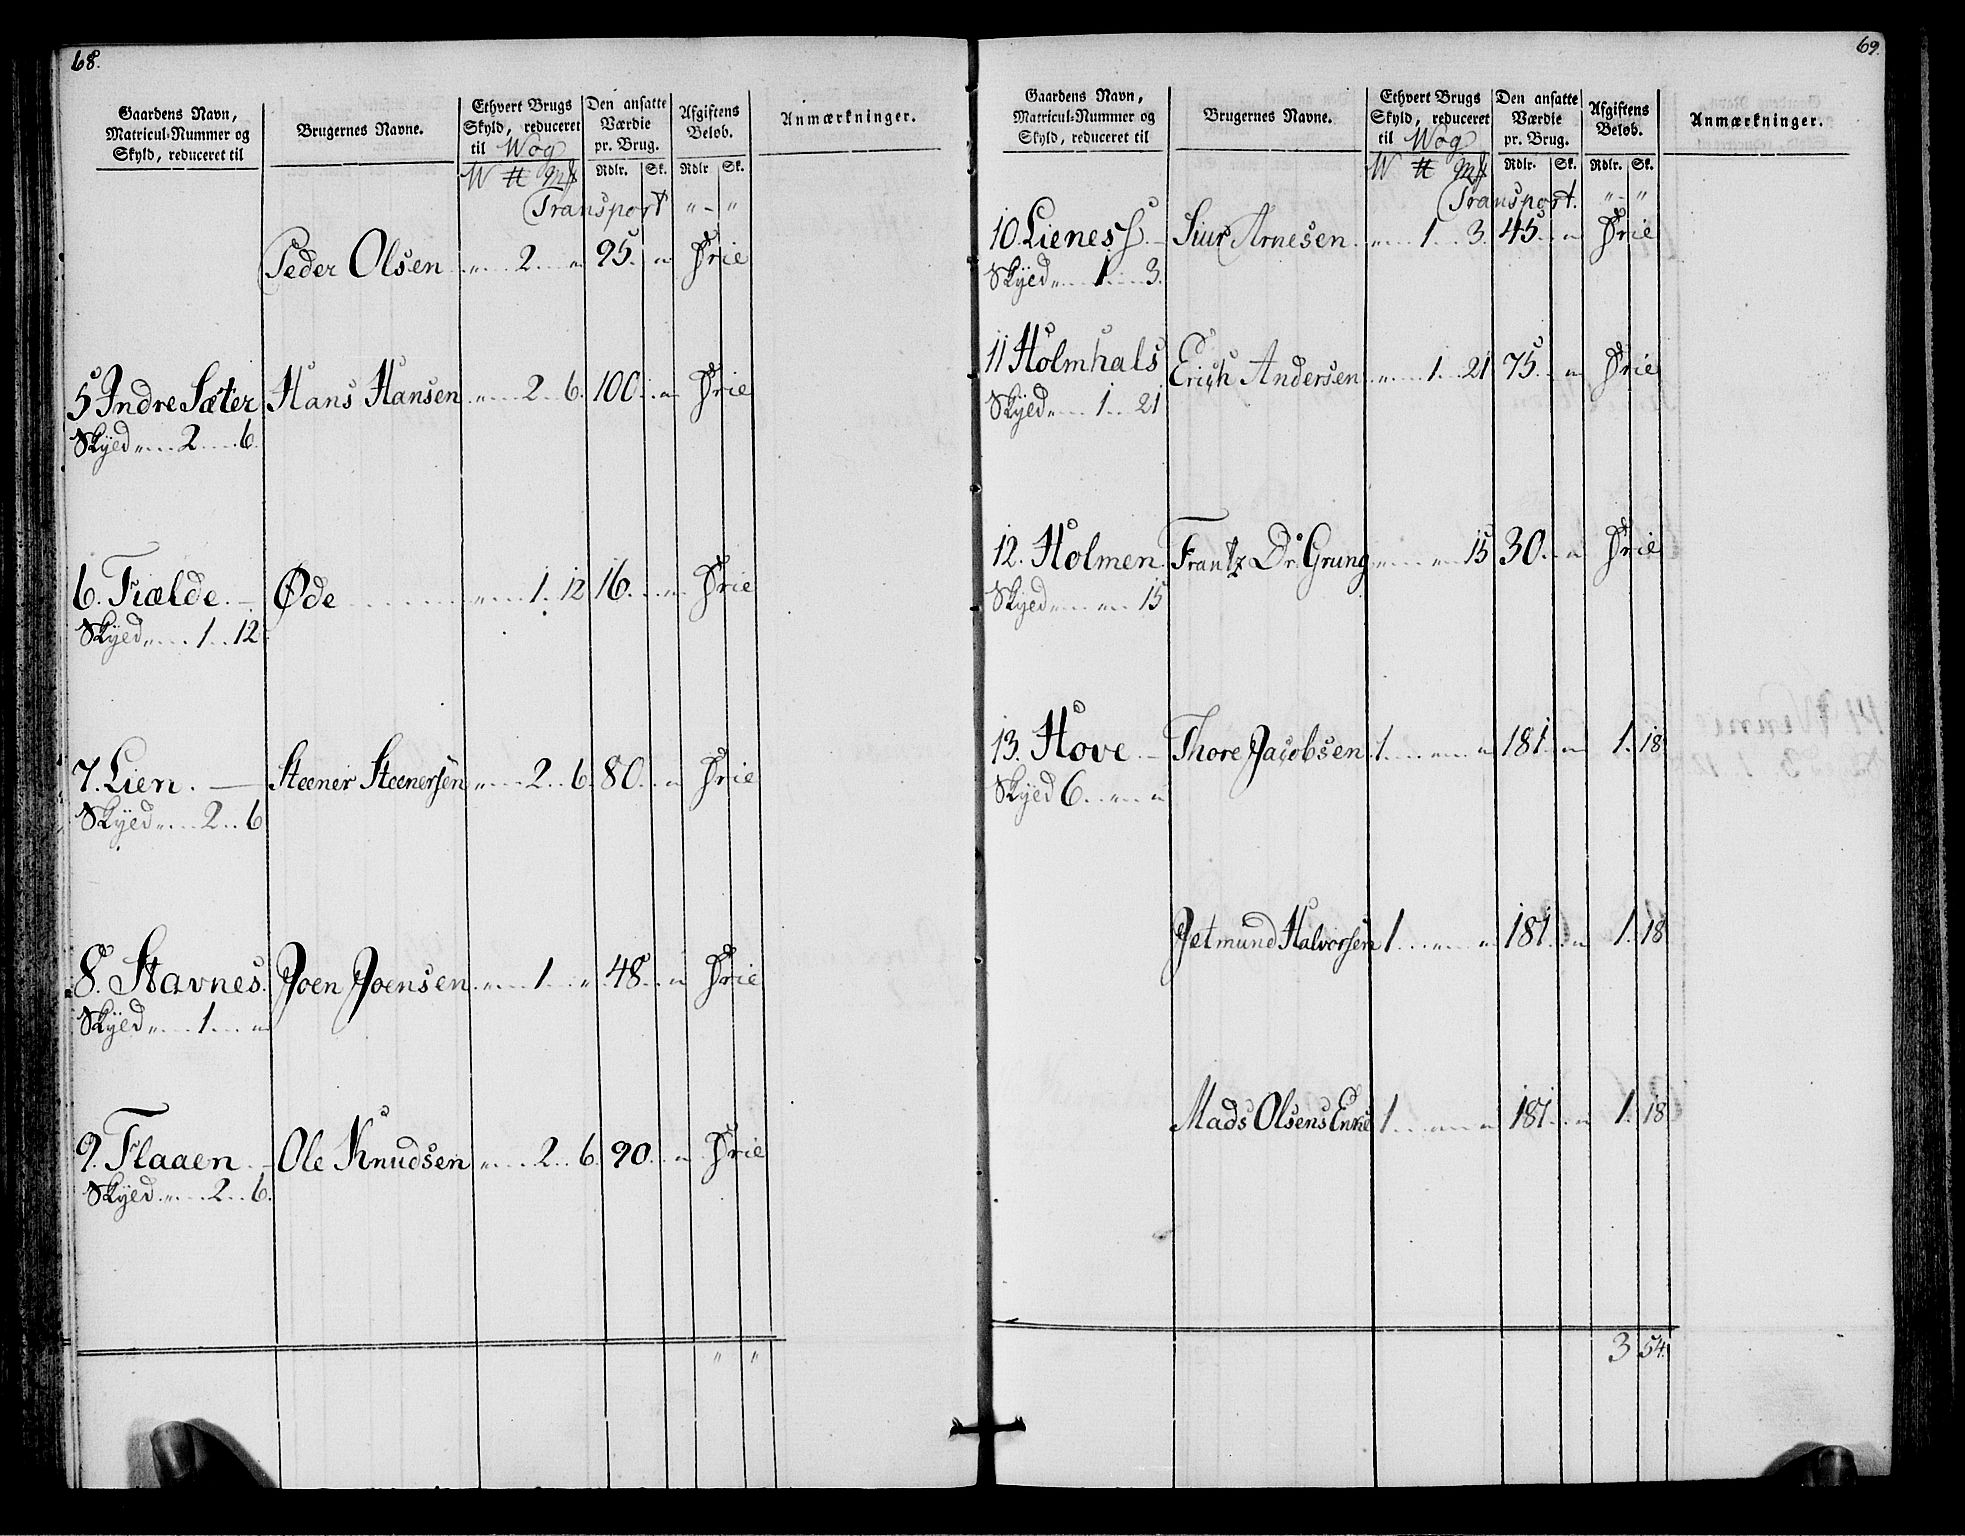 68.
Gaardens Navn, Matricul-Nummer og Skyld, reduceret til
Brugernes Navne.
Ethvert Brugs Skyld, reduceret til Wog
Den ansatte Værdie pr. Brug.
Afgiftens Beløb.
Anmærkninger.
W ℔ Mk Rdlr. Sk. Rdlr Sk.
Transport " - "
Peder Olsen " 2 " 95 " Frie
5 Indre Sæter Hans Hansen " 2 6. 100 " Frie
Skyed " 2 6.
6. Fiælde. Øde " 1. 12 16 " Frie
Skyed " 1 12
7. Lien. Steener Steenersen " 2 6. 80 " Frie
Skyed " 2 6
8. Stavnes. Joen Joensen " 1 " 48 " Frie
Skyed " 1 "
9. Flaaen Ole Knudsen " 2 6. 90 " Frie
Skyed " 2 6.
" "
69.
Gaardens Navn, Matricul-Nummer og Skyld, reduceret til
Brugernes Navne.
Ethvert Brugs Skyld, reduceret til Wog
Den ansatte Værdie pr. Brug.
Afgiftens Beløb.
Anmærkninger.
W ℔ Mk Rdlr. Sk. Rdlr. Sk.
Transport. " - "
10. Lienes Siur Arnesen " 1 3. 45 " Frie
Skyed " 1 3.
11 Holmhals Erich Andersen " 1 21 75 " Frie
Skyed " 1 21
12. Holmen Frantz Dr. Grung " " 15 30 " Frie
Skyed " " 15
13. Hove Thore Jacobsen 1 " " 181 " 1. 18
Skyed 6 " "
Jetmund Halvorsen 1 " " 181 " 1. 18
Mads Olsens Enke 1 " " 181 " 1. 18
3 54.